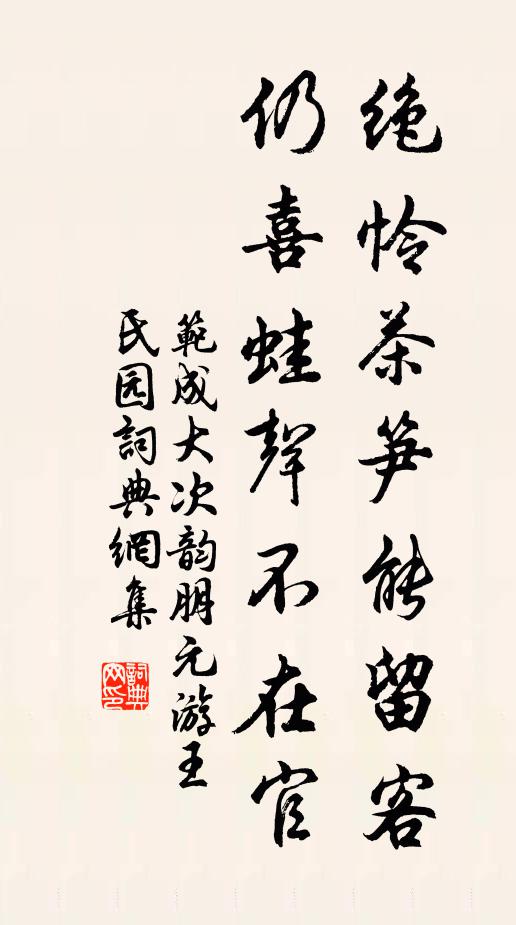 绝怜茶笋能留客
仍喜蛙聲不在官
範成大次韵朋元游王
氏园詞典網集
詞典网印